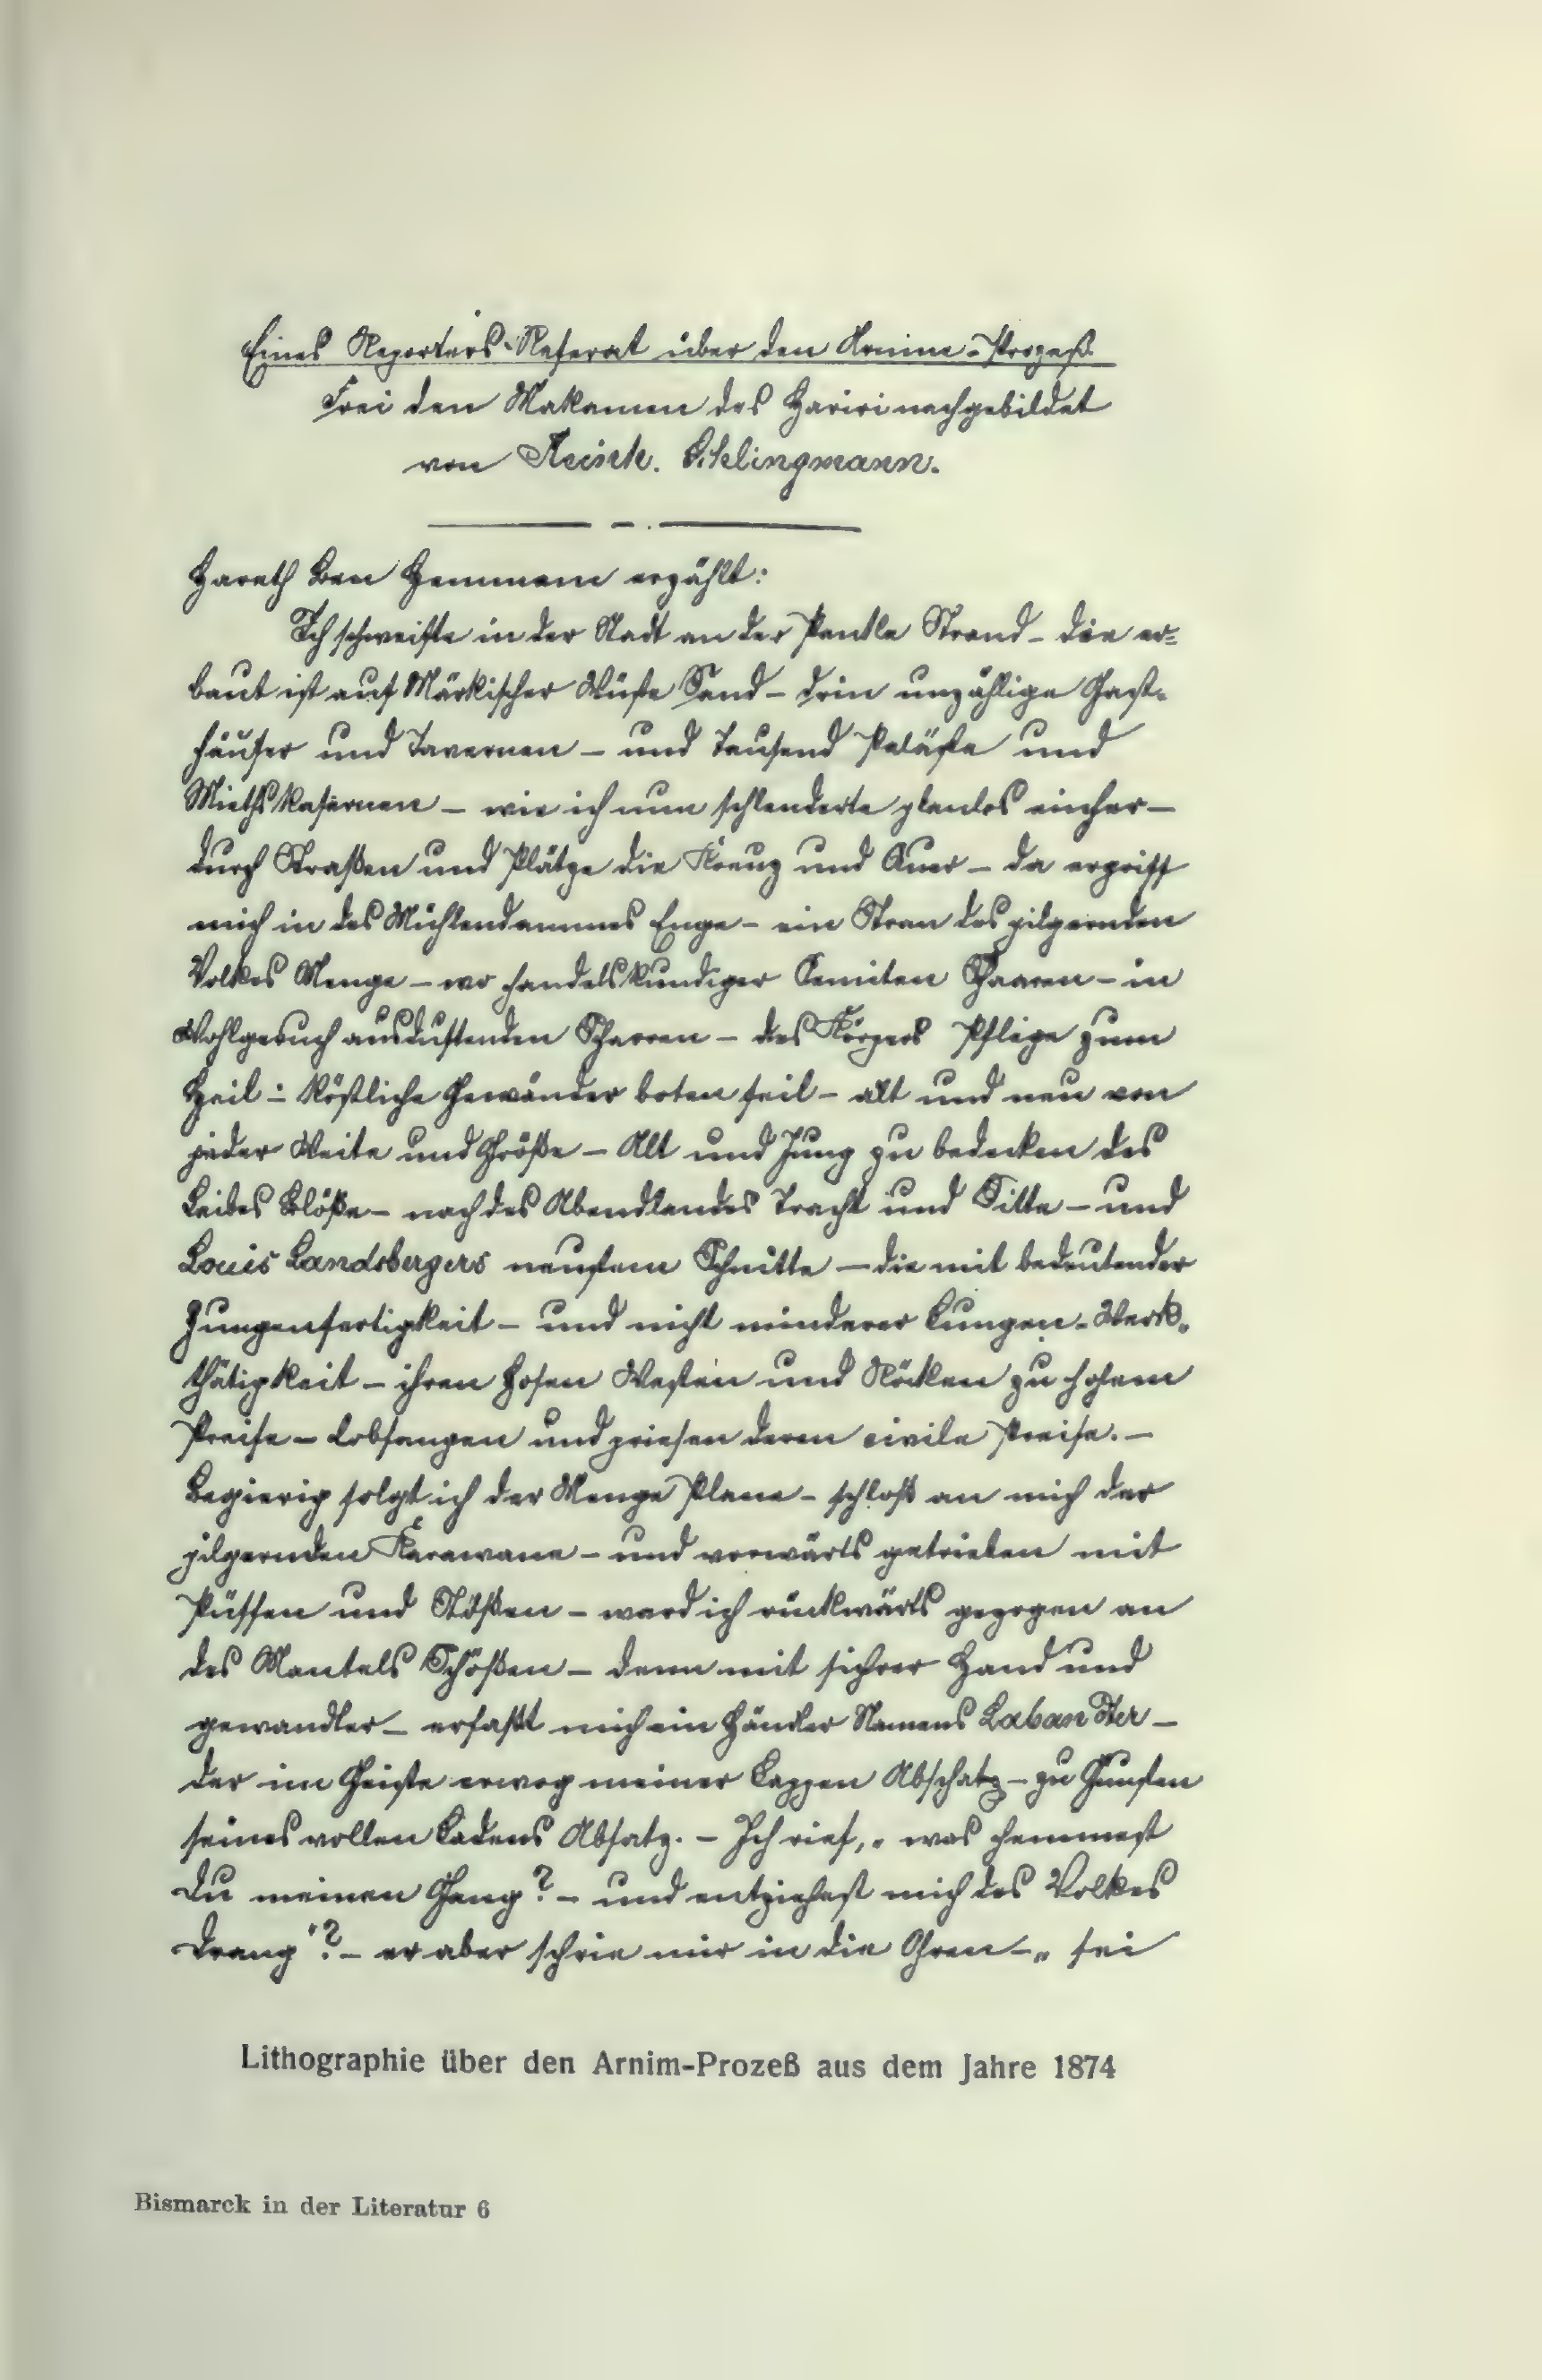 Eines Reporters-Referat über den Arnim-Prozeß.
Frei den Makamen des Hariri nachgebildet
von Schlingmann.
Hareth Ben Hemmam erzählt:
Ich schweifte in der Stadt an der Panke Strand – die er=
baut ist auf Märkischer Wüste Sand – drin unzählige Gast-
häuser und Tavernen – und Tausend Paläste und
Miethskasernen – wie ich nun schlenderte planlos einher –
durch Straßen und Plätze die Kreuz und Quer – da ergriff
mich in des Mühlendammes Enge – ein des pilgernden
Volkes Menge – wo handelskundiger Semiten Schaaren – in
Wohlgeruch ausduftenden – des Körpers Pflege zum
Heil – köstliche Gewänder boten feil – alt und neu von
jeder Weite und Größe – Alt und Jung zu bedecken des
Leibes Blöße – nach des Abendlandes Tracht und Sitte – und
Louis Landsbergers neustem Schnitte – die mit bedeutender
Zungenfertigkeit – und nicht minderer Lungen-Werk-
thätigkeit – ihren Hosen Westen und Röcken zu hohem
Preise – lobsangen und priesen deren civile Preise. –
Begierig folgt ich der Menge Plane – schloß an mich der
pilgernden Karawane – und vorwärts getrieben mit
Püffen und Stößen – ward ich rückwärts gezogen an
des Mantels Schößen – denn mit sichrer Hand und
gewandter – erfaßt mich ein Händler Namens Labandter –
der im Geiste erwog meiner Lappen Abschatz – zu Gunsten
seines vollen Ladens Absatz. – Ich rief, „was hemmest
Du meinen Gang? – und entziehest mich des Volkes
Drang"? – er aber schrie mir in die Ohren – „sei
Lithographie über den Arnim-Prozeß aus dem Jahre 1874
Bismarck in der Literatur 6